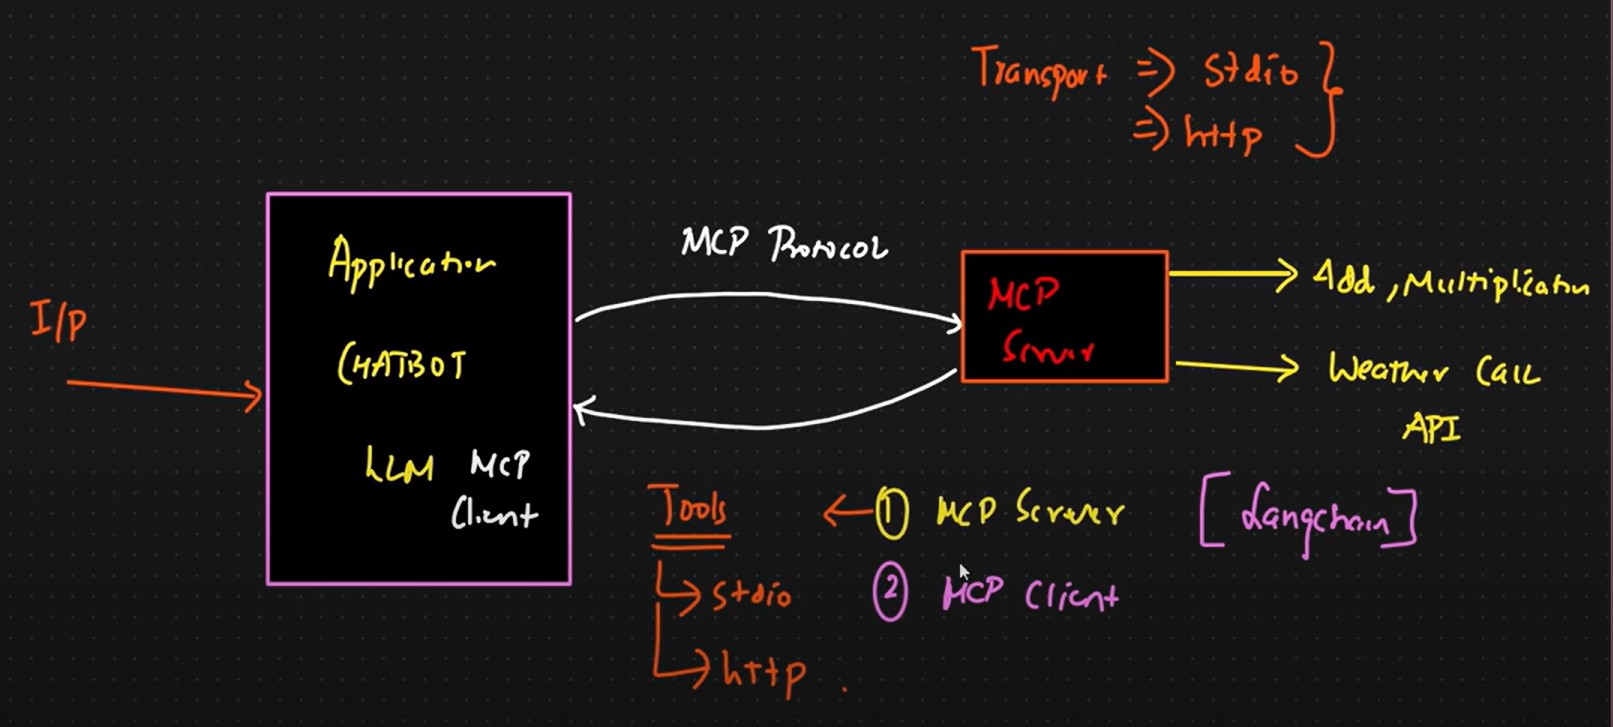 Transport => stdio
=> http
I/p
Application
CHATBOT
LLM MCP
Client
MCP Protocol
MCP
Server
Add, Multiplication
Weather Call
API
Tools
stdio
http
① MCP Server
② MCP Client
[Langchain]